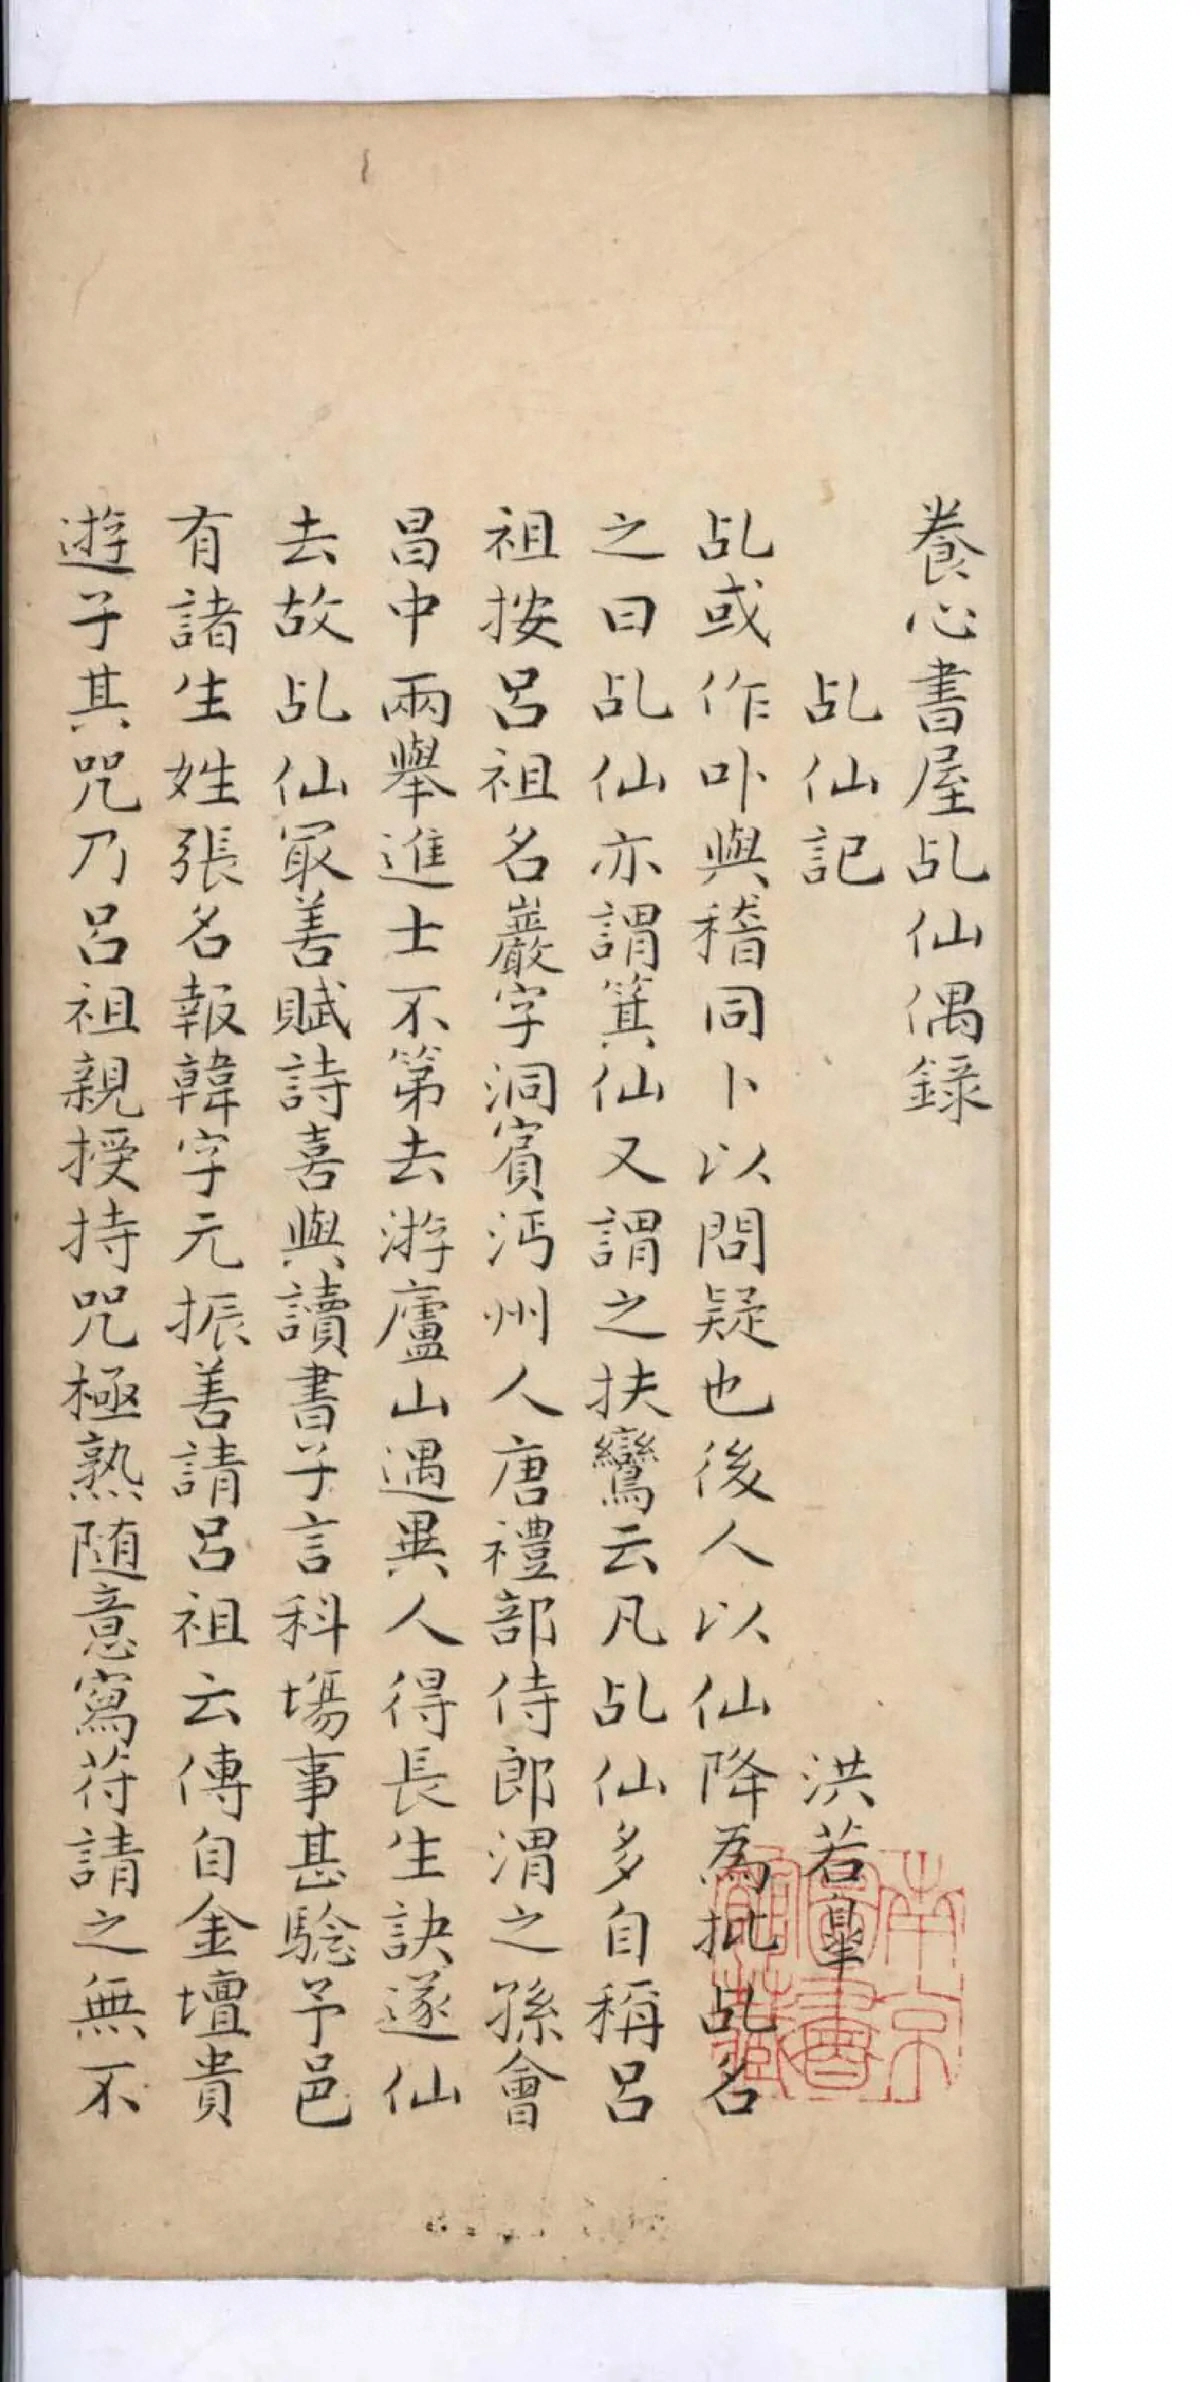 養心書屋乩仙偶錄
乩仙記 洪若皐
乩或作卟與稽同卜以問疑也後人以仙降為批乩名
之曰乩仙亦謂箕仙又謂之扶鸞云凡乩仙多自稱呂
祖按呂祖名巖字洞賓沔州人唐禮部侍郎渭之孫會
昌中兩舉進士不第去游廬山遇異人得長生訣遂仙
去故乩仙冣善賦詩喜與讀書子言科塲事甚騐予邑
有諸生姓張名報韓字元振善請呂祖云傳自金壇貴
遊子其咒乃呂祖親授持咒極熟随意寫苻請之無不
南京
圖書
館藏